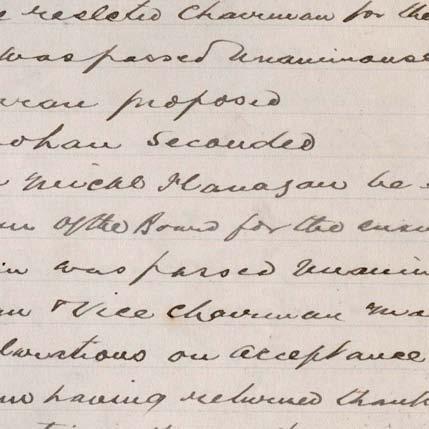 e reslcted Chairman for the
was passed unanimouse
proposed
ohan seconded
Michl Flanagan be
of the Board for the ensu
was passed Unanim
& Vice Chairman Ma
larations on acceptance
having returned thank